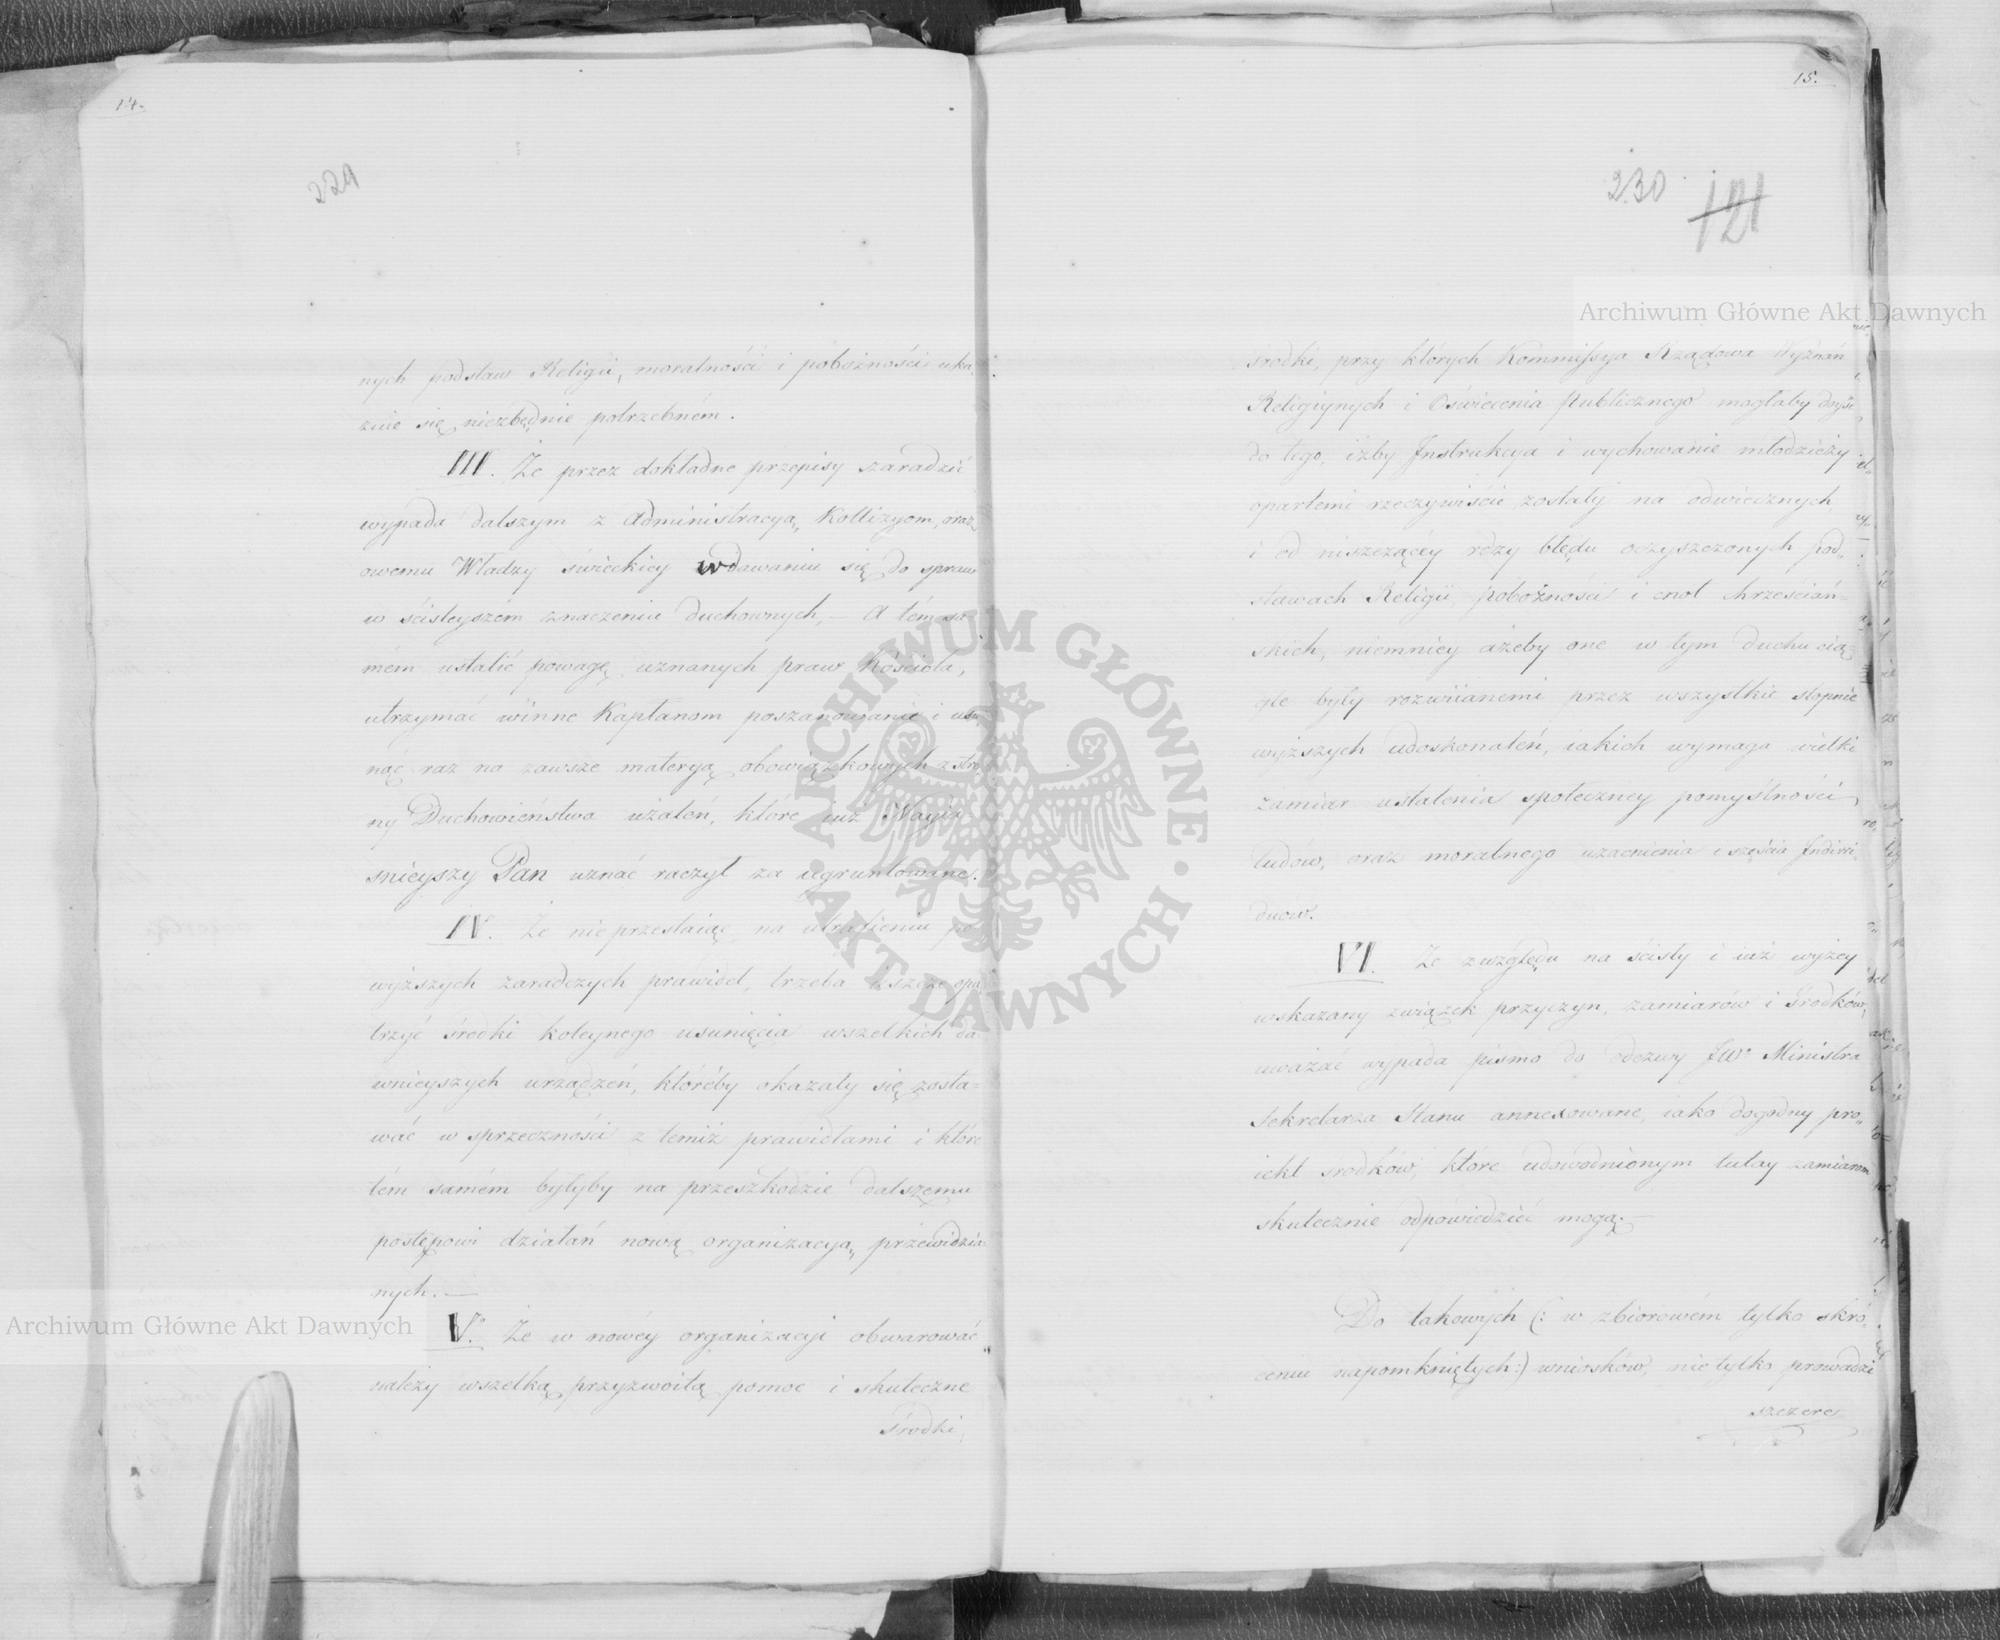 14.
229
nych podstaw Religii, moralności i pobożności uka„
zuie się niezbędnie potrzebném.
III. Że przez dokładne przepisy zaradzić
wypada dalszym z Administracyą Kollizyom, oraz
owemu Władzy świeckiey wdawaniu się do spraw
w ściśleyszém znaczeniu duchownych, – a tém sa„
mém ustalić powagę uznanych praw Kościoła,
utrzymać winne Kapłanom poszanowanie i usu„
nąć raz na zawsze materyą obowiązkowych z stro„
ny Duchowieństwa użaleń, które iuż Nayia„
śnieyszy Pan uznać raczył za ugruntowane.
IV. Że nie przestaiąc na utrafieniu po„
wyższych zaradczych prawideł, trzeba ieszcze opa„
trzyć środki koleynego usunięcia wszelkich da„
wnieyszych urządzeń, któréby okazały się zosta=
wać w sprzeczności z temiż prawidłami i które
tém samém byłyby na przeszkodzie dalszemu
postępowi działań nową organizacyą przewidzia„
nych. —
V. Że w nowéy organizacyi obwarować
należy wszelką przyzwoitą pomoc i skuteczne
środki,
15.
230
121
środki, przy których Kommissya Rządowa Wyznań
Religiynych i Oświecenia Publicznego mogłaby doyść
do tego, iżby Instrukcya i wychowanie młodzieży
opartemi rzeczywiście zostały na odwiecznych
i od niszczącéy rdzy błędu oczyszczonych pod„
stawach Religii, pobożności i cnot chrześciań=
skich, niemniey ażeby one w tym duchu cią„
gle były rozwiianemi przez wszystkie stopnie
wyższych udoskonaleń, iakich wymaga wielki
zamiar ustalenia społeczney pomyślności
ludów, oraz moralnego uzacnienia i szczęścia Indiwi„
duów.
VI. Że z względu na ścisły i iuż wyżey
wskazany związek przyczyn, zamiarów i środków,
uważać wypada pismo do odezwy JW. Ministra
Sekretarza Stanu annexowane, iako dogodny pro„
iekt środków, które udowodnionym tutay zamiarom
skutecznie odpowiedzieć mogą. —
Do takowych (: w zbiorowém tylko skró„
ceniu napomkniętych :) wniosków, nie tylko prowadzi
szczere
Archiwum Główne Akt Dawnych
Archiwum Główne Akt Dawnych
ARCHIWUM GŁÓWNE · AKT DAWNYCH ·